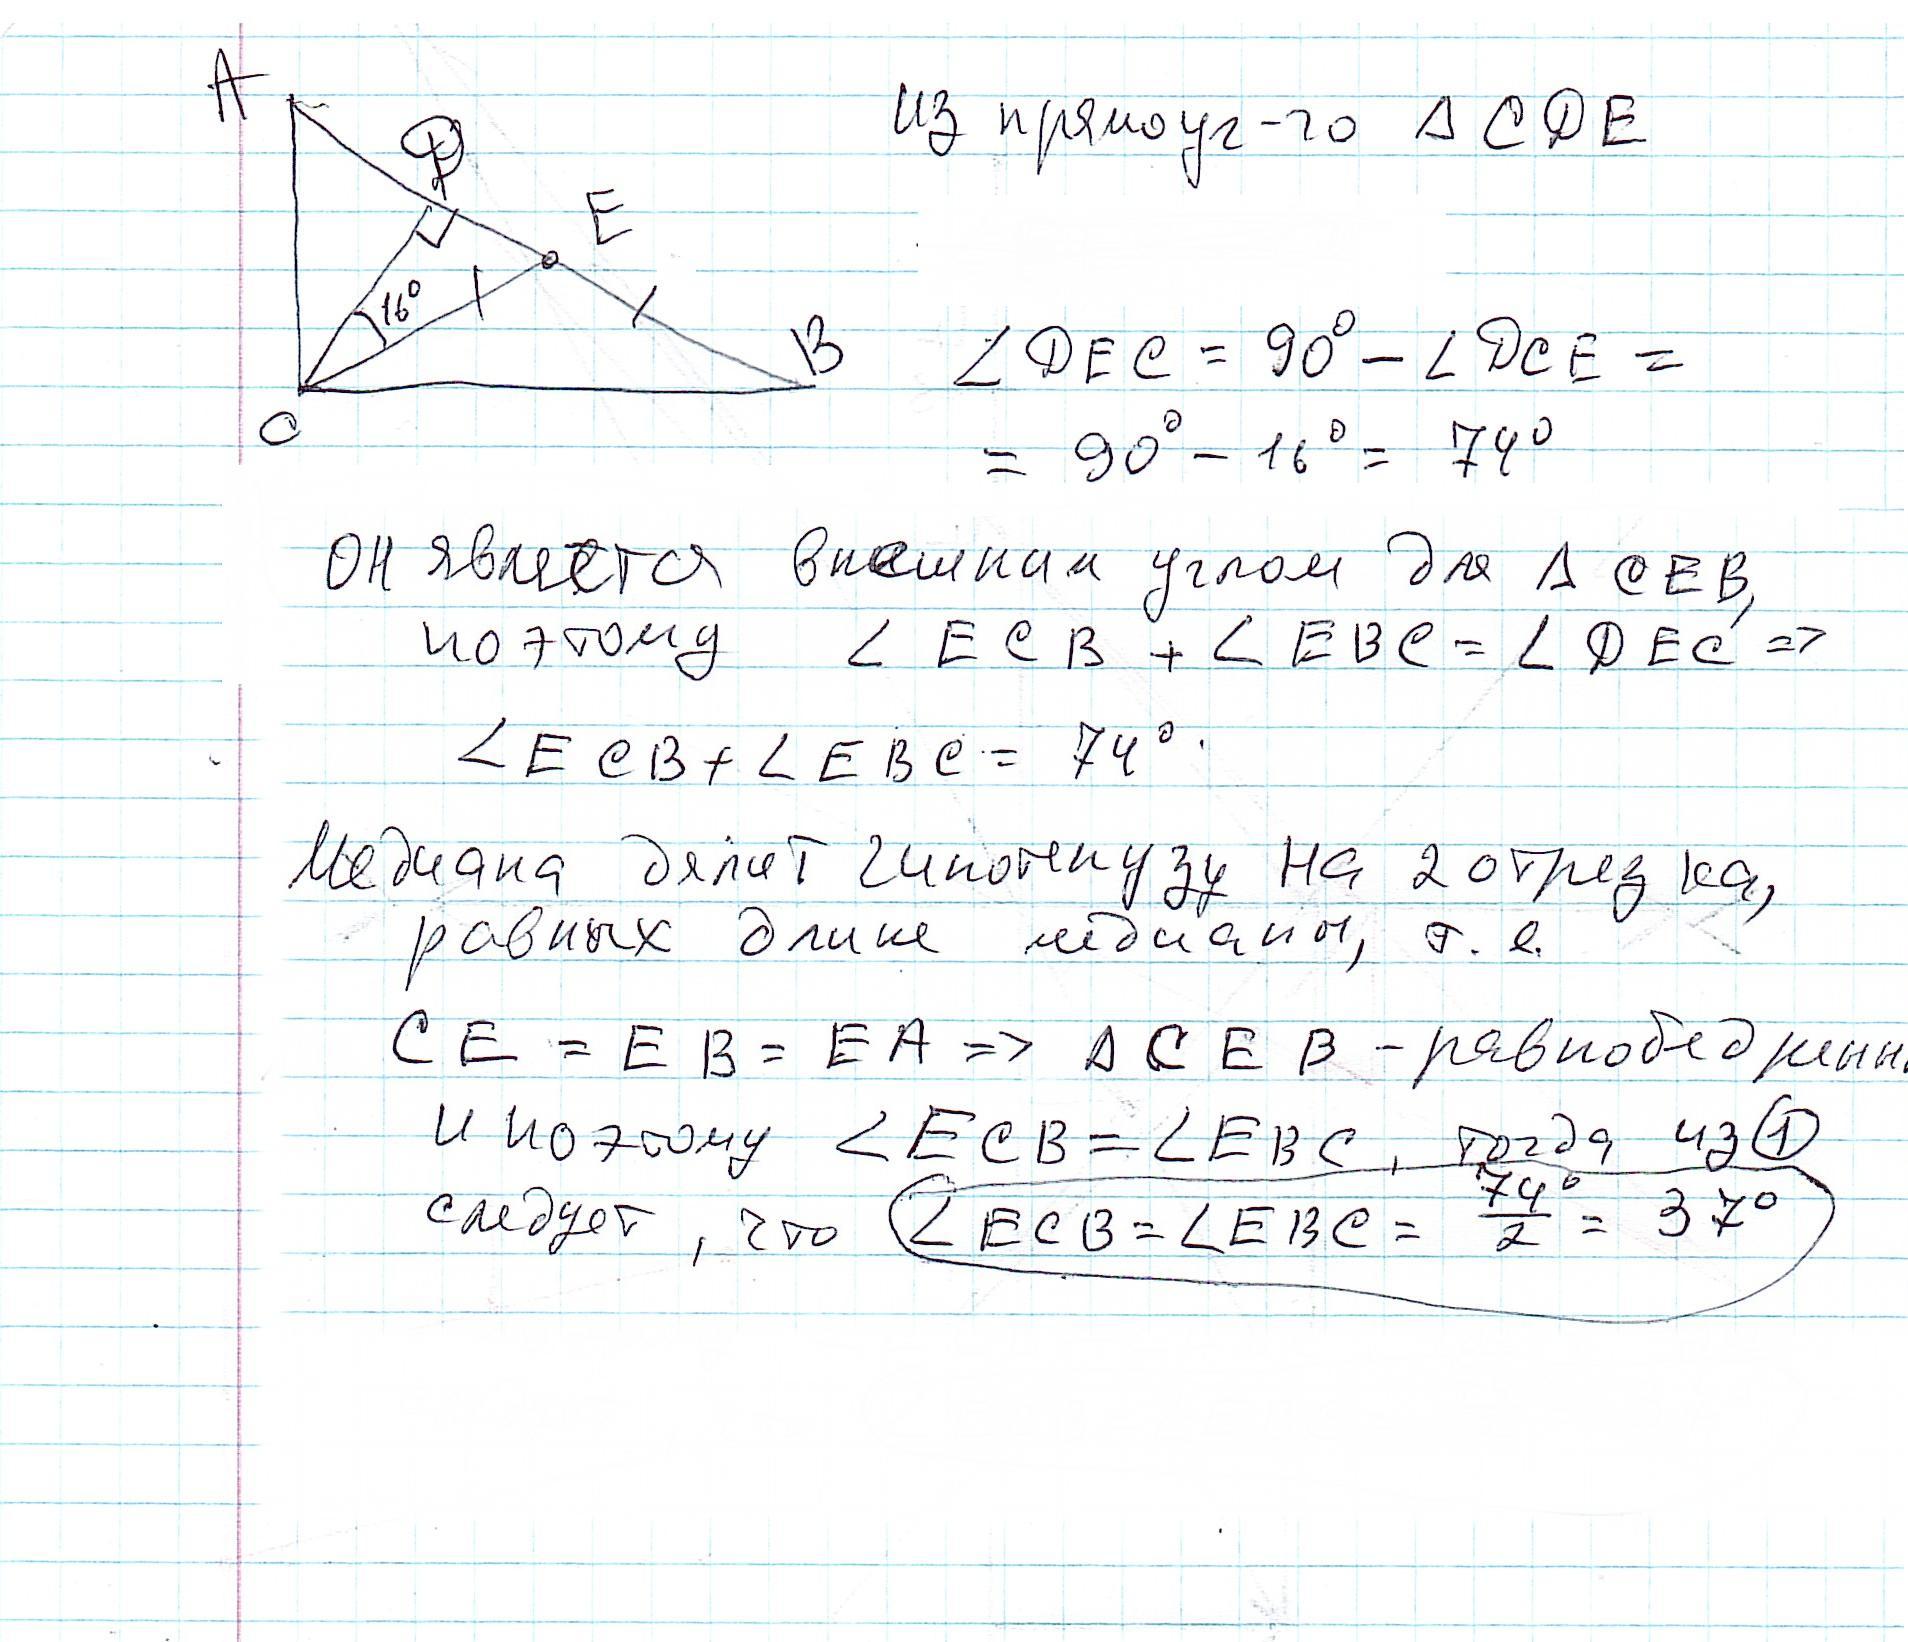 A
D
E
16°
B
C
из прямоуг-го Δ CDE
∠DEC = 90° - ∠DCE =
= 90° - 16° = 74°
он является внешним углом для Δ CEB,
поэтому ∠ECB + ∠EBC = ∠DEC =>
∠ECB + ∠EBC = 74°.
Медиана делит гипотенузу на 2 отрезка,
равных длине медианы, т.е.
CE = EB = EA => Δ CEB - равнобедренны
и поэтому ∠ECB = ∠EBC, тогда из ①
следует, что ∠ECB = ∠EBC = 74°/2 = 37°